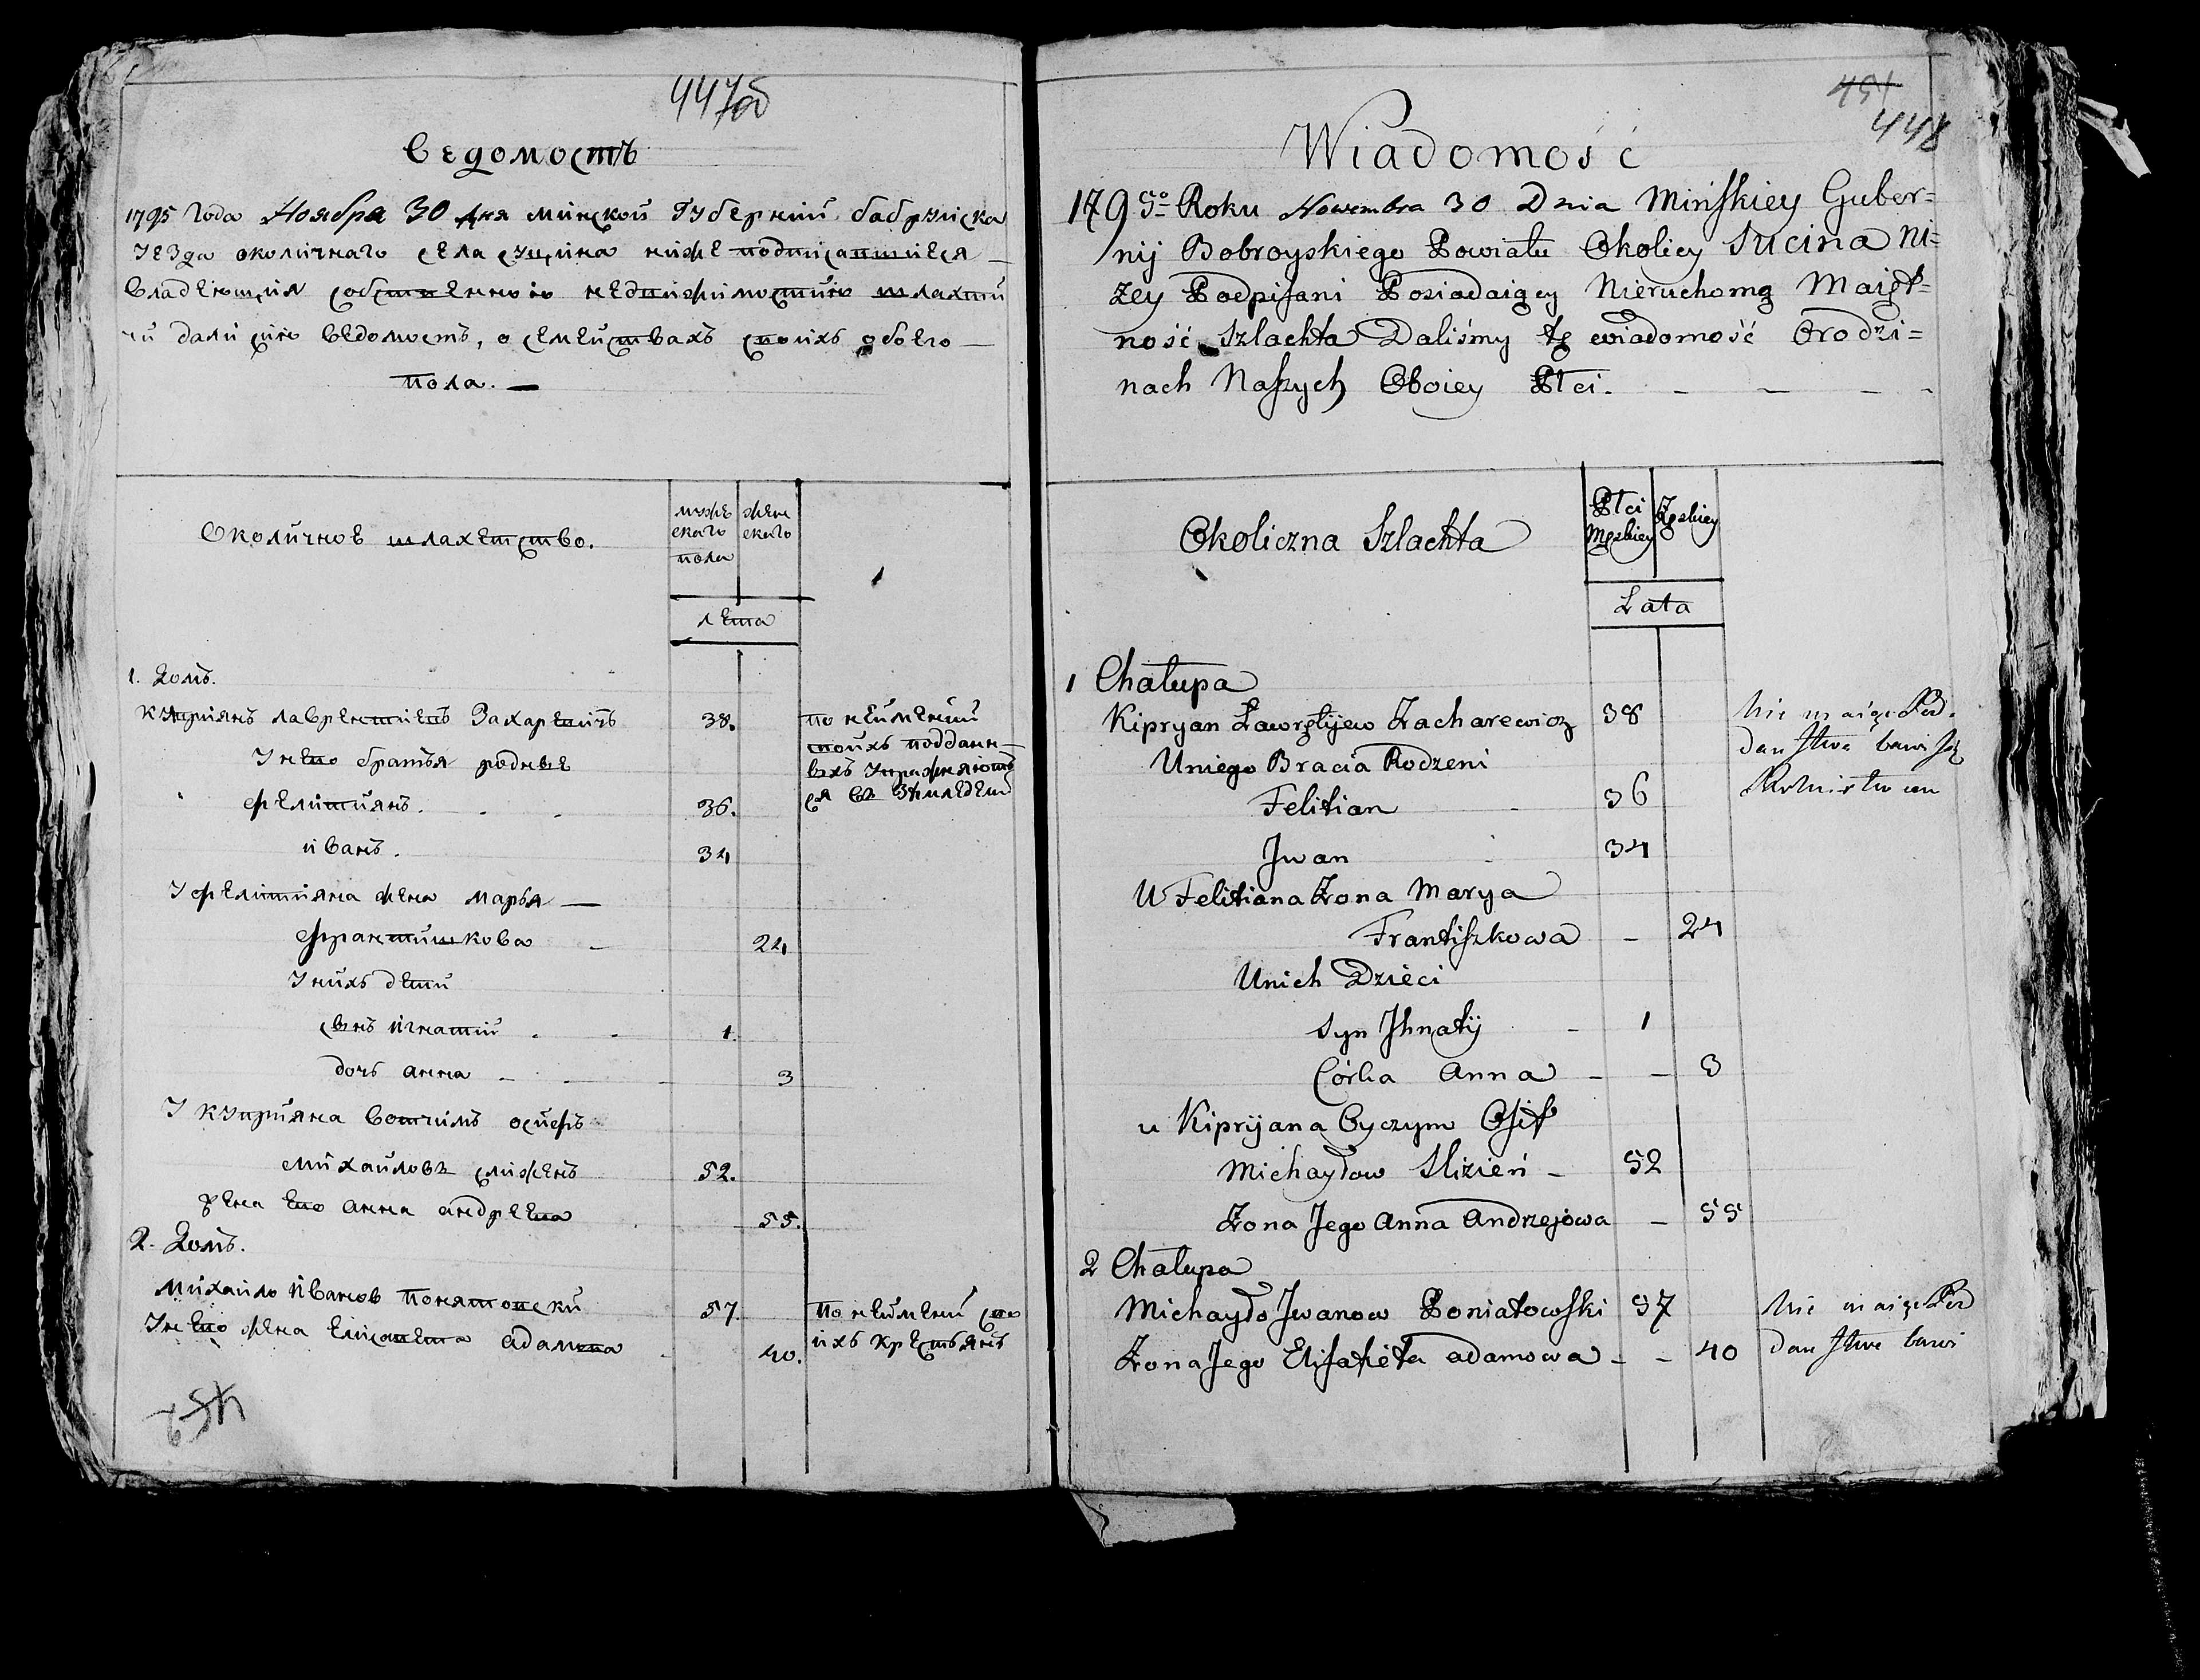 447об
Ведомость
1795 года Ноября 30 дня минской Губернии бабруиска
уезда околичнаго села сущина ниже подписавшиеся —
владеющия собственною недвижимостию шляхти
чи дали сию ведомость, о семействахъ своихъ обоего —
пола. —
Околичное шляхетство.
муже
скаго
пола
жен
скаго
лета
1. Домъ.
Куприянъ лаврентиевъ Захаревичъ 38. по неимению
своихъ поддан—
У него братья родные
ныхъ упражняют
Фелитиянъ. 36. ся въ земледели
иванъ. 34
У Фелитияна жена марья —
Франтишкова — 24
У нихъ дети
сынъ игнатий 1.
дочь анна — 3
У Куприяна вотчимъ осифъ
михаиловъ слижень 52.
жена ево анна андреева 55.
2. Домъ.
михаило иванов понятовски 57. по неимению сво
ихъ крестьянъ
У нево жена елисавета адамова 40.
451
448
Wiadomość
1795go Roku Nowembra 30 Dnia Mińskiey Guber=
nij Bobroyskiego Powiatu Okolicy Sucina Ni=
zey Podpisani Posiadaiący Nieruchomą Maięt=
ność Szlachta Daliśmy tę wiadomość O rodzi=
nach Naszych Oboiey Płci. — — — -
Okoliczna Szlachta
Płci
Męskiey
Żeskiey
Lata
1 Chałupa
Kipryan Ławrętijew Zacharewicz 38 Nie maiąc Pod-
daństwa bawi się
Uniego Bracia Rodzeni
Felitian - 36 Rolnictwem
Jwan 34
U Felitiana Żona Marya
Frantiszkowa — 24
Unich Dzieci
Syn Jhnatij — 1
Córka Anna — — 3
u Kiprijana Oyczym Osif
Michayłow Slizień — 52
Żona Jego Anna Andrzejowa — 55
2 Chałupa
Michayło Jwanow Poniatowski 57 Nie maiąc Pod
daństwa bawi
Żona Jego Elisawieta adamowa — — 40